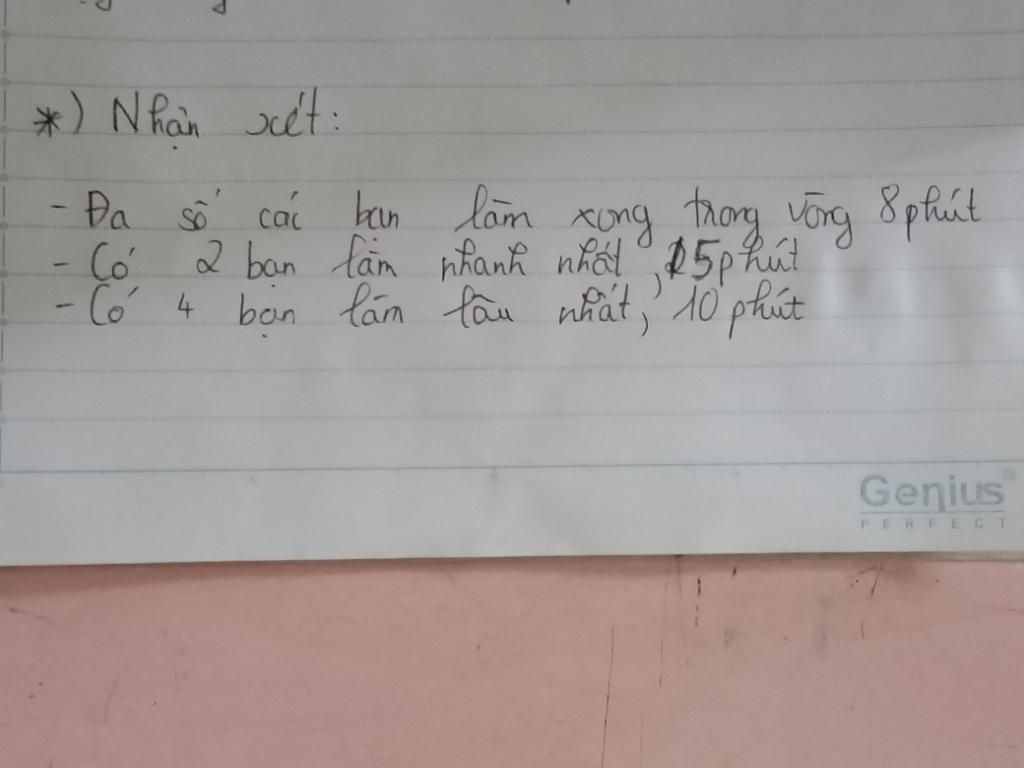 *) Nhận xét:
- Đa số các bạn làm xong trong vòng 8 phút
- Có 2 bạn làm nhanh nhất, 5 phút
- Có 4 bạn làm lâu nhất, 10 phút
Genius®
PERFECT